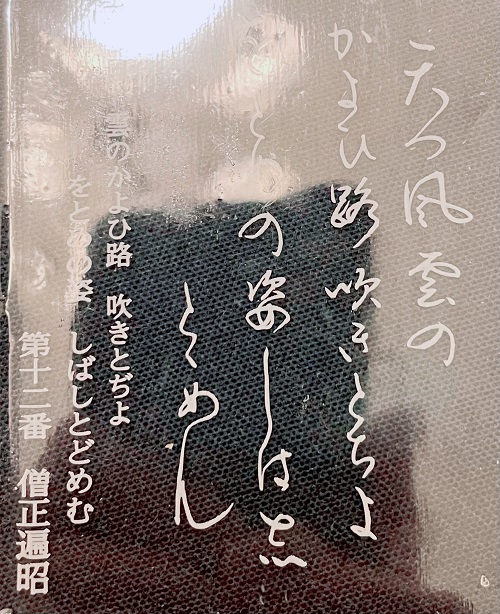 天つ風雲の
かよひ路吹きとちよ
をとめの姿しは志
とゝめん
雲のかよひ路 吹きとぢよ
をとめの姿 しばしとどめむ
第十二番 僧正遍昭